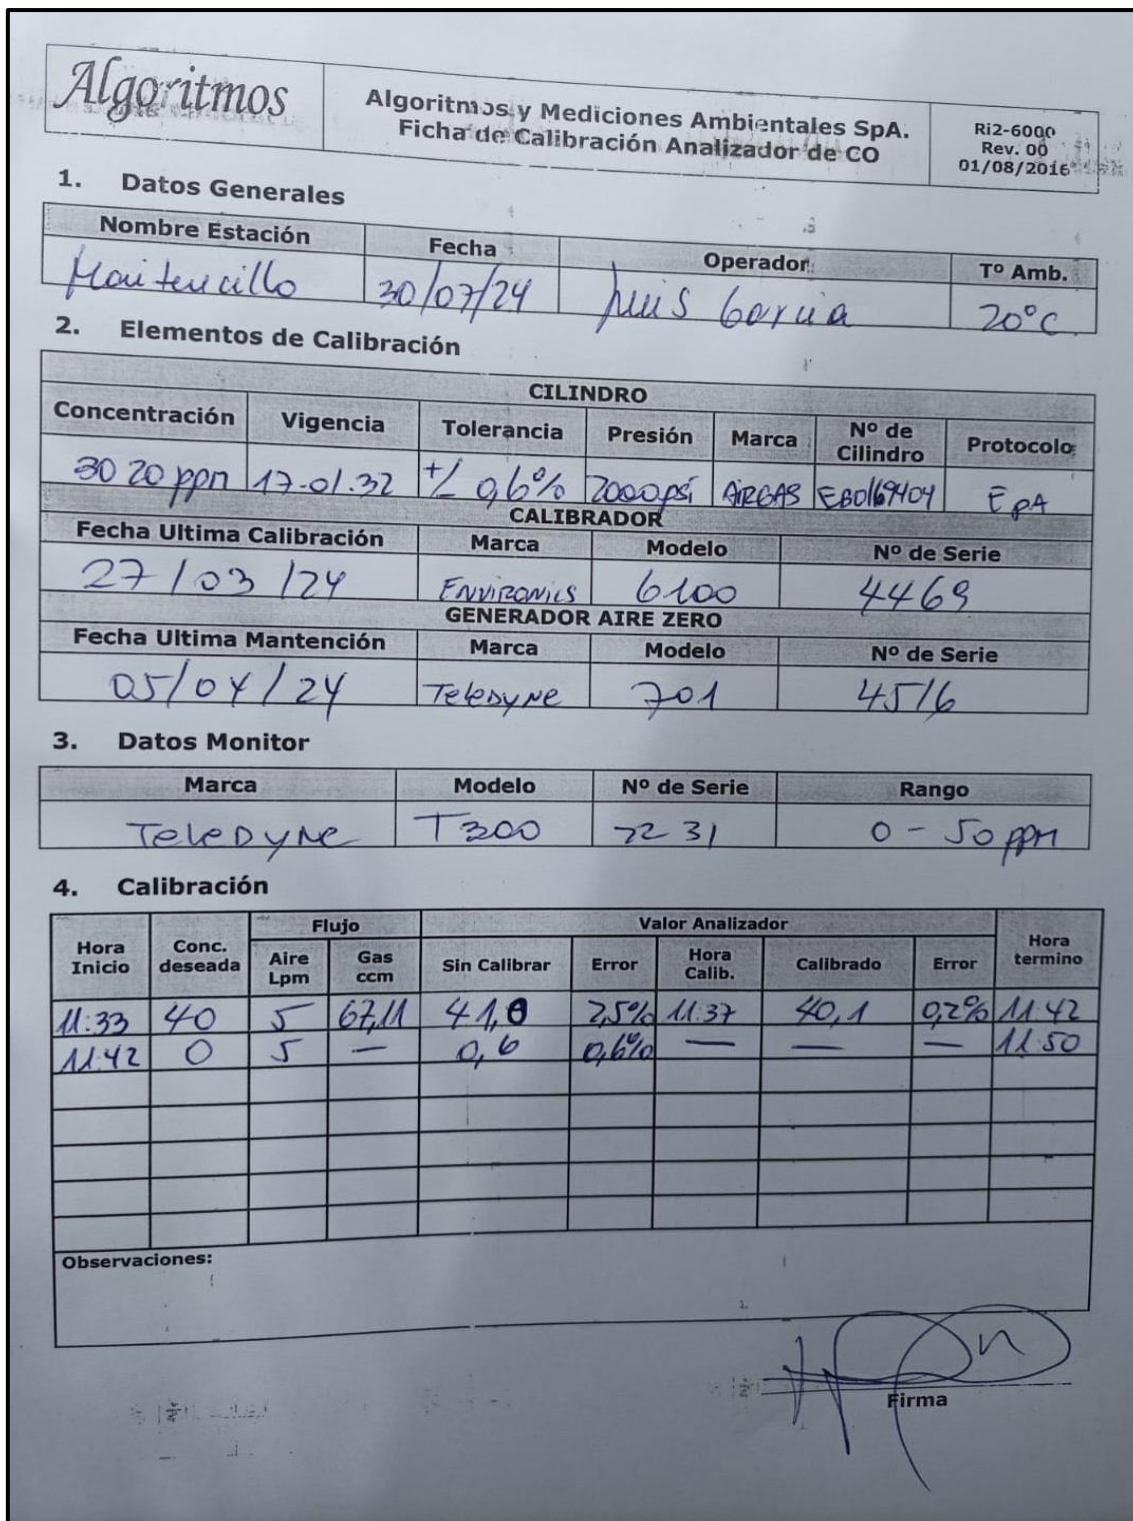 Algoritmos
Algoritmos y Mediciones Ambientales SpA.
Ficha de Calibración Analizador de CO
Ri2-6000
Rev. 00
01/08/2016
1. Datos Generales
Nombre Estación Fecha Operador Tº Amb.
Maitencillo 30/07/24 Luis Garcia 20°C
2. Elementos de Calibración
CILINDRO
Concentración Vigencia Tolerancia Presión Marca Nº de Cilindro Protocolo
3020 ppm 17-01.32 +/- 0,6% 2000psi AIRGAS EB0169404 EPA
CALIBRADOR
Fecha Ultima Calibración Marca Modelo Nº de Serie
27/03/24 Environics 6100 4469
GENERADOR AIRE ZERO
Fecha Ultima Mantención Marca Modelo Nº de Serie
05/04/24 Teledyne 701 4516
3. Datos Monitor
Marca Modelo Nº de Serie Rango
Teledyne T300 2231 0 - 50 ppm
4. Calibración
Hora Inicio Conc. deseada Flujo Valor Analizador Hora termino
Aire Lpm Gas ccm Sin Calibrar Error Hora Calib. Calibrado Error
11:33 40 5 67,11 41,0 2,5% 11:37 40,1 0,2% 11:42
11:42 0 5 — 0,6 0,6% — — — 11:50
Observaciones:
Firma